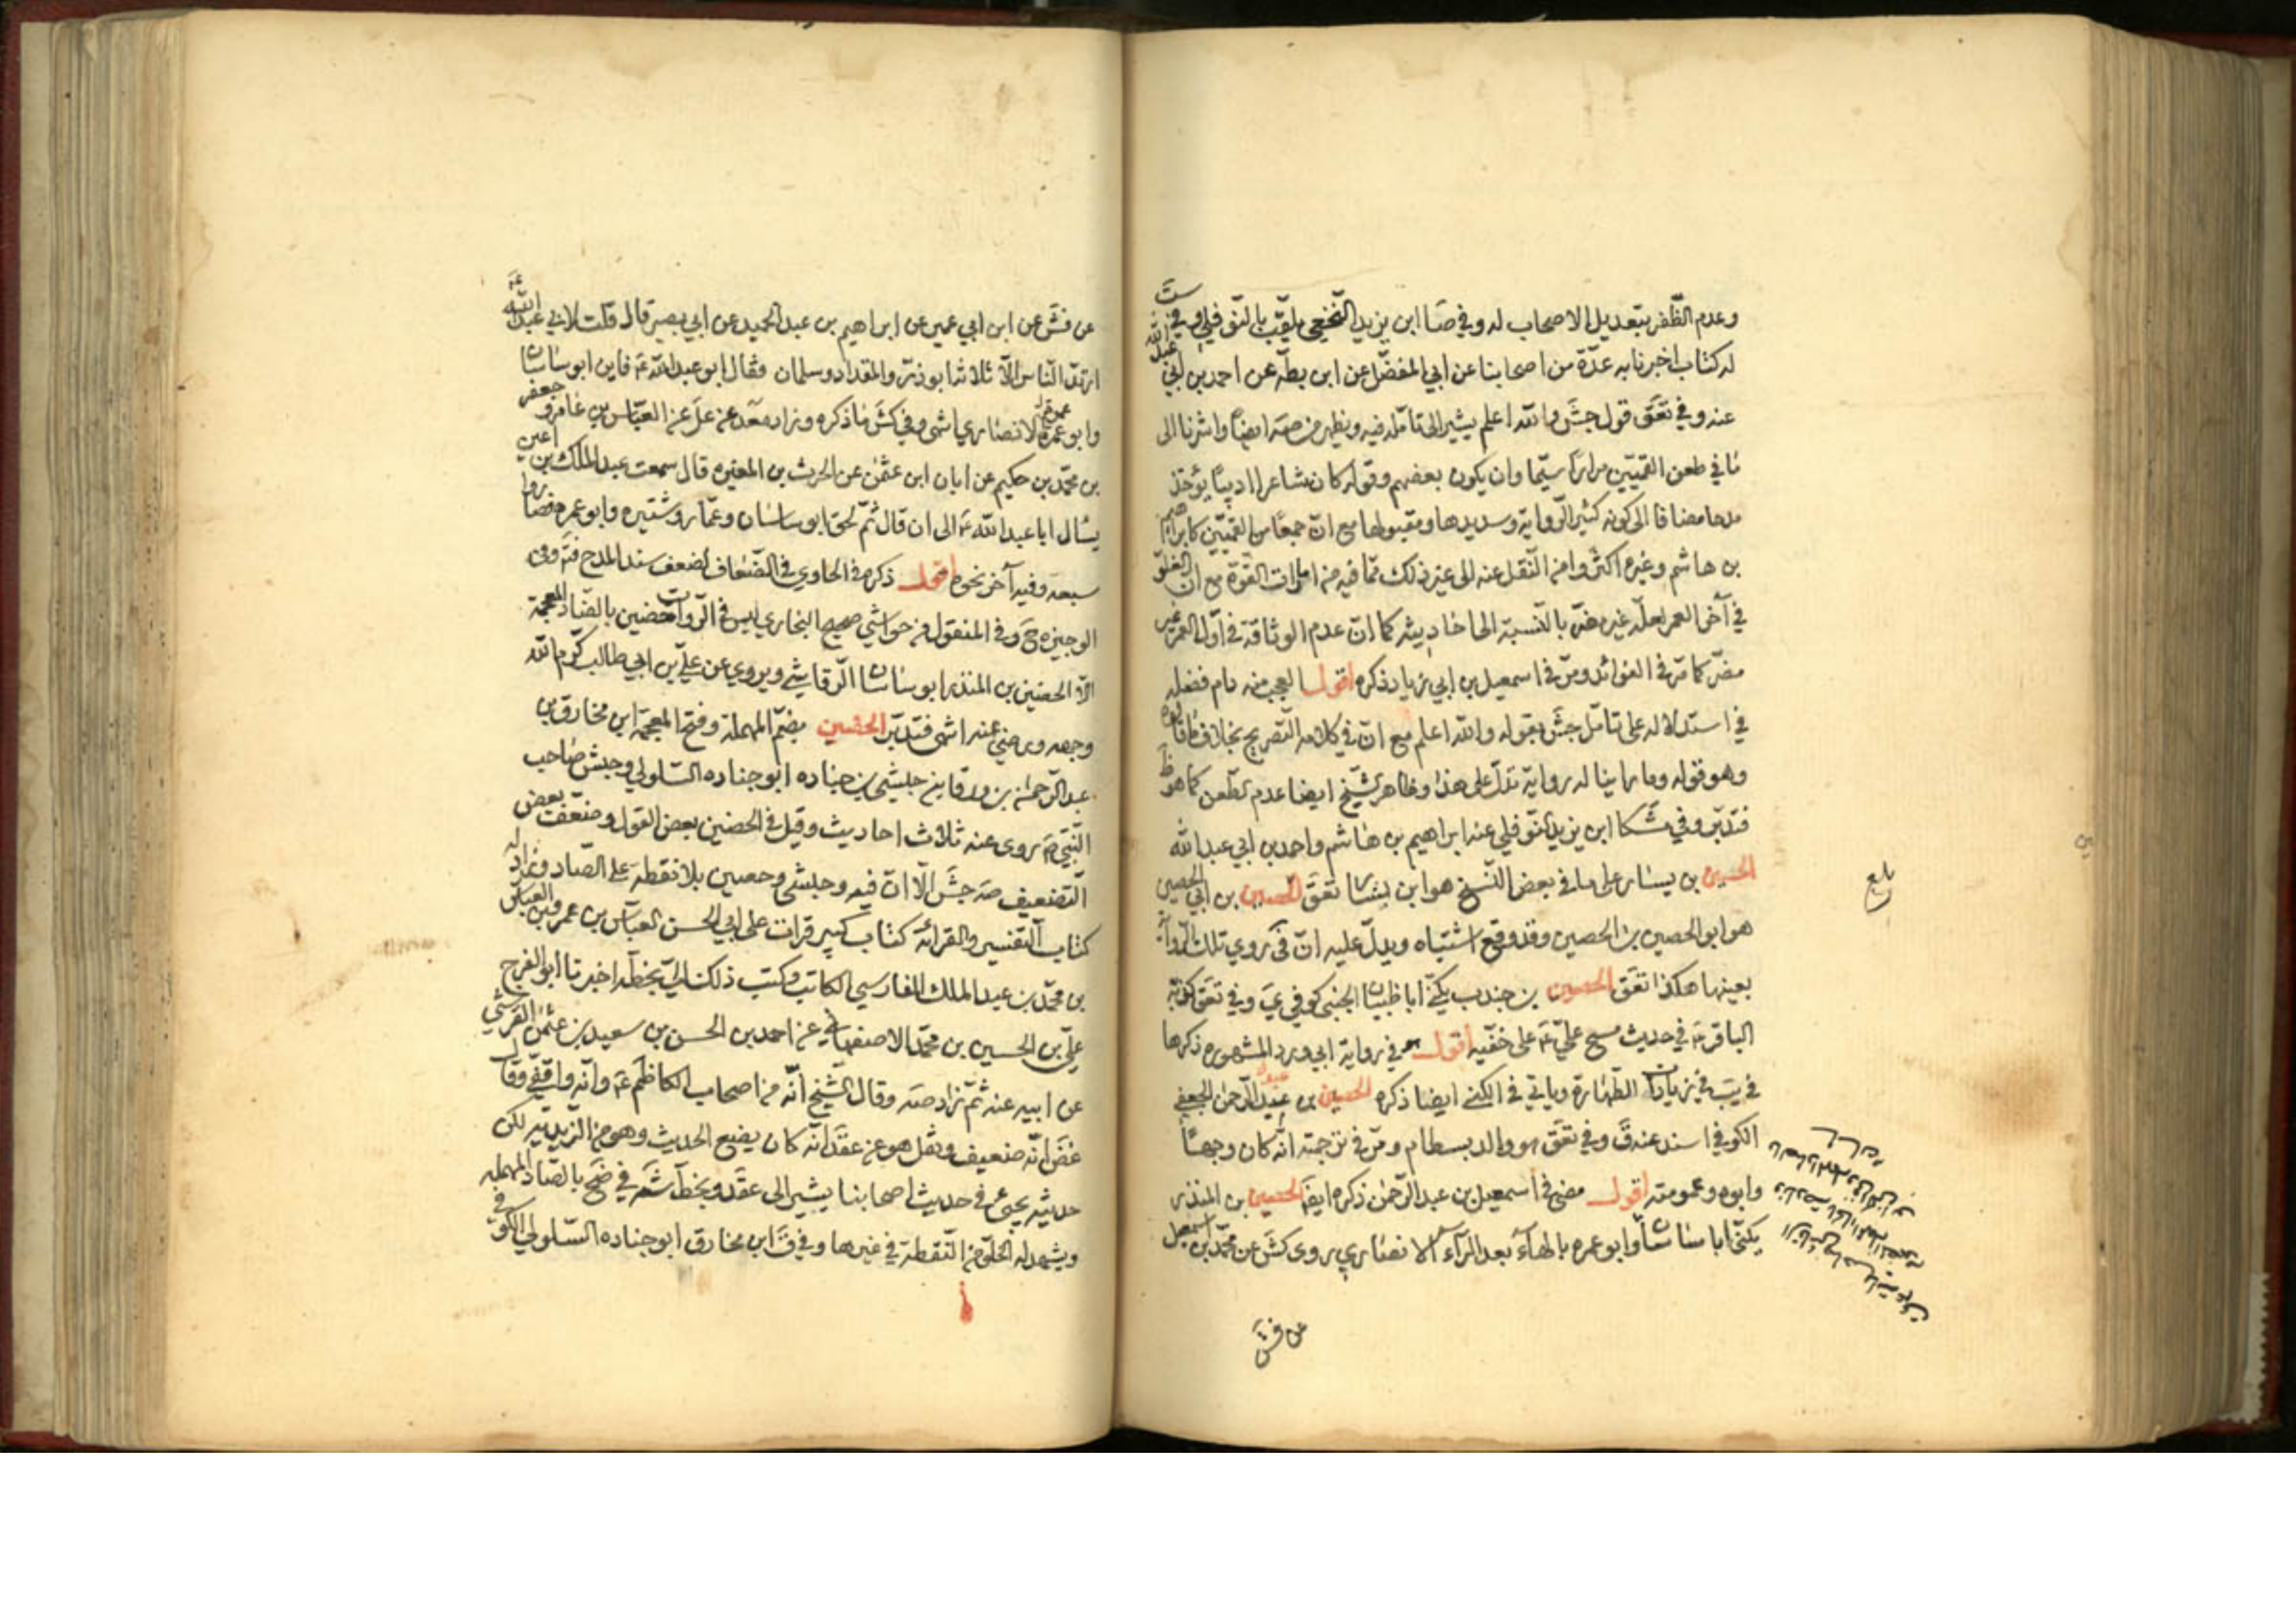 وعدم الظّفر بتعديل الاصحاب له وفي صا ابن يزيد النخعي يلقّب بالنوفلي وفي ست
له كتاب اخبرنا به عدّة من اصحابنا عن ابي المفضّل عن ابن بطّه عن احمد بن ابي عبد الله
عنه وفي تعق قول جش والله اعلم يشير الى تامّله فيه ويظهر من صه ايضًا واشرنا الى
ما في طعن القميّين مرارًا سيّما وان يكون بعضهم وقوله كان شاعرا اديبًا يؤخذ
مدحا مضافا الى كونه كثير الرّواية وسديدها ومقبولها مع انّ جمعًا من القميّين كابراهيم
بن هاشم وغيره اكثروا من النّقل عنه الى غير ذلك ممّا فيه من امارات القوّة مع ان الغلوّ
في آخر العمر لعلّه غير مضرّ بالنّسبة الى احاديثه كما انّ عدم الوثاقة في اوّل العمر غير
مضرّ كما مرّ في الفوائد ومرّ في اسمعيل بن ابي زياد ذكره اقول العجب منه دام فضله
في استدلاله على تامّل جش بقوله والله اعلم مع انّ في كلامه التّصريح بخلاف ما قالوه
وهو قوله وما راينا له رواية تدلّ على هذا وظاهر الشّيخ ايضا عدم الطّعن كما هو ظ
فتدبّر وفي مشكا ابن يزيد النّوفلي عنه ابراهيم بن هاشم واحمد بن ابي عبد الله
الحسين بن يسار على ما في بعض النّسخ هو ابن بشّار تعق الحصين بن ابي الحصين
هو ابو الحصين بن الحصين وقد وقع اشتباه ويدلّ عليه انّ في كر روي تلك الرّواية
بعينها هكذا تعق الحصين بن جندب يكنّى ابا ظبيان الجنبي كوفي ي وفي تعق كونه
الباقر ع في حديث مسح عليّ ع على خفّيه اقول هو في رواية ابي ورد المشهوره ذكرها
في يب في زيادات الطّهارة وياتي في الكنى ايضا ذكره الحصين بن عبد الرّحمن الجعفي
الكوفي اسند عنه ق وفي تعق هو والد بسطام ومرّ في ترجمته انّه كان وجهًا
وابوه وعمومته اقول مضى في اسمعيل بن عبد الرّحمن ذكره ايضا الحصين بن المنذر
يكنّى ابا ساسان وابو عمره بالهاء بعد الرّاء الانصاري روى كش عن محمّد بن اسمعيل
بلغ
عن فش
عن فش عن ابن ابي عمير عن ابراهيم بن عبد الحميد عن ابي بصير قال قلت لابي عبد الله ع
ارتدّ النّاس الّا ثلاثه ابو ذر والمقداد وسلمان فقال ابو عبد الله ع فاين ابو ساسان
وابو عمرة الانصاري انتهى وفي كش ما ذكره وزاد محمد عن علي عن العبّاس بن عامر وجعفر
بن محمّد بن حكيم عن ابان ابن عثمن عن الحرث بن المغيره قال سمعت عبد الملك بن اعين
يسأل ابا عبد الله ع الى ان قال ثمّ لحق ابو ساسان وعمّار وشتيره وابو عمره فصاروا
سبعه وفيه آخر نحوه اقول ذكره في الحاوي في الضّعاف لضعف سند المدح فتر وفي
الوجيزه ح وفي المنقول من حواشي صحيح البخاري ليس في الرّوات حضين بالضّاد المعجمة
الّا الحضين بن المنذر ابو ساسان الرّقاشي ويروي عن عليّ بن ابي طالب كرّم الله
وجهه ورضي عنه انتهى فتدبّر الحضين بضمّ المهملة وفتح المعجمة ابن مخارق بن
عبد الرّحمن بن ورقا بن حبشي بن جناده ابو جناده السّلولي وحبشي صاحب
النّبي ص روى عنه ثلاث احاديث وقيل في الحضين بعض القول وضعّف بعض
التّضعيف صه جش الّا انّ فيه وحبشي وحصين بلا نقطة على الصاد وزاد له
كتاب التّفسير والقرائه كتاب كبير قرات على ابي الحسن العبّاس بن عمر بن العبّاس
بن محمّد بن عبد الملك الفارسي الكاتب وكتب ذلك لي بخطّه اخبرنا ابو الفرج
عليّ بن الحسين بن محمّد الاصفهاني عن احمد بن الحسن بن سعيد بن عثمن القرشي
عن ابيه عنه ثمّ زاد صه وقال الشّيخ انّه من اصحاب الكاظم ع وانّه واقفي وقال
غض انّه ضعيف ونقل هو عن عقد انّه كان يضيع الحديث وهو من الزّيديّه لكن
حديثه يجيء في حديث اصحابنا يشير الى عقد وبخطّ شه في ضح بالصّاد المهمله
ويشهد له الخلوّ من النّقطة في غيرها وفي ق ابن مخارق ابو جناده السّلولي الكوفي